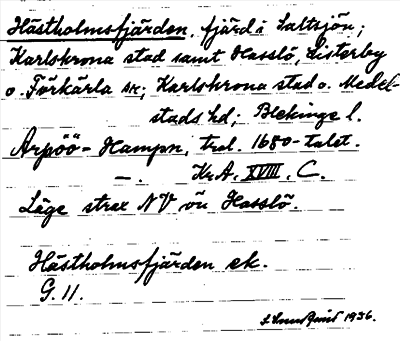 Hästholmsfjärden, fjärd i Saltsjön;
Karlskrona stad samt Hasslö, Listerby
o. Förkärla sn; Karlskrona stad o. Medel-
stads hd; Blekinge l.
Arpöö-Hampn, trol. 1680-talet.
—. Kr.A. XVIII. C.
Läge strax NV ön Hasslö.
Hästholmsfjärden ek.
G. 11.
1936.